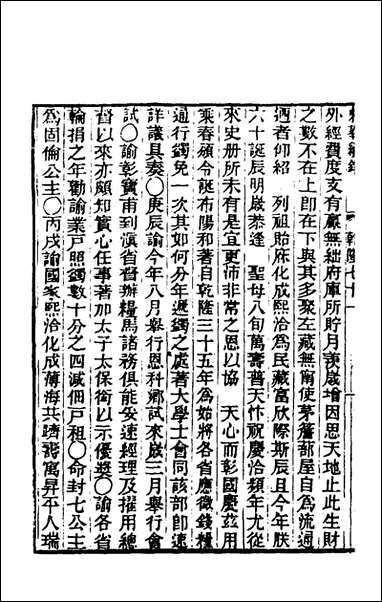 外經費度支有贏無絀府庫所貯月羡歲增因思天地止此生財
之數不在上卽在下與其多聚左藏無甯使茅簷蔀屋自爲流通
迺者仰紹　列祖貽庥化成熙洽爲民藏富欣際斯辰且今年朕
六十誕辰明歲恭逢　聖母八旬萬壽普天忭祝慶洽頻年尤從
來史册所未有是宜更沛非常之恩以協　天心而彰國慶茲用
乘春頒令誕布陽和著自乾隆三十五年爲始將各省應徵錢糧
通行蠲免一次其如何分年遞蠲之處著大學士會同該部卽速
詳議具奏○庚辰諭今年八月舉行恩科鄉試來歲三月舉行會
試○諭彰寶甫到滇省督辦糧馬諸務俱能妥速經理及擢用總
督以來亦頗知實心任事著加太子太保銜以示優奬○諭各省
輪捐之年勸諭業戸照蠲數十分之四減佃戸租○命封七公主
爲固倫公主○丙戌諭國家熙洽化成薄海共躋壽㝢昇平人瑞